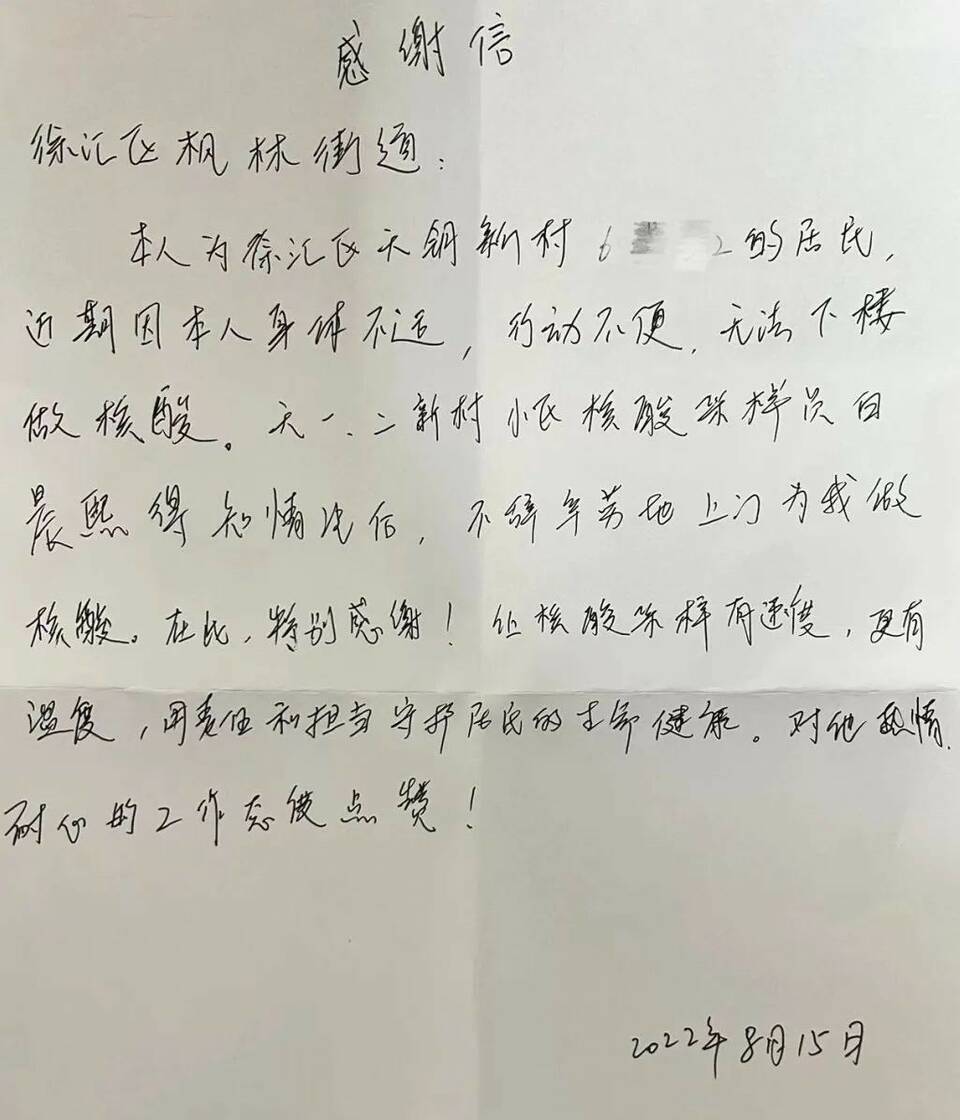 感谢信
徐汇区枫林街道：
本人为徐汇区天钥新村6 2的居民，
近期因本人身体不适，行动不便，无法下楼
做核酸。天一、二新村小区核酸采样员白
晨熙得知情况后，不辞辛劳地上门为我做
核酸。在此，特别感谢！让核酸采样有速度，更有
温度，用责任和担当守护居民的生命健康。对他热情、
耐心的工作态度点赞！
2022年8月15日